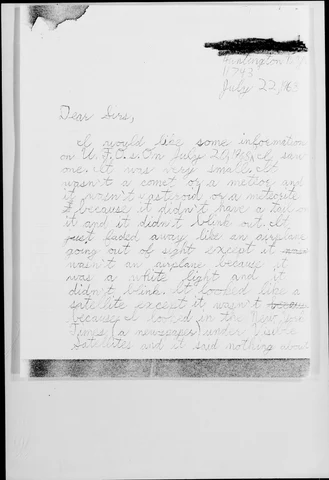 Huntington N.Y.
11743
July 22, 1968
Dear Sirs,
I would like some information
on U.F.O.s. On July 21, 1968, I saw
one. It was very small. It
wasn't a comet or a meteor and
it wasn't asteroid or a meteorite
because it didn't have a tail on
it and it didn't blink out. It
just faded away like an airplane
going out of sight except it
wasn't an airplane because it
was a white light and it
didn't blink. It looked like a
satellite except it wasn't
because I looked in the New York
Times (a newspaper) under Visible
Satellites and it said nothing about